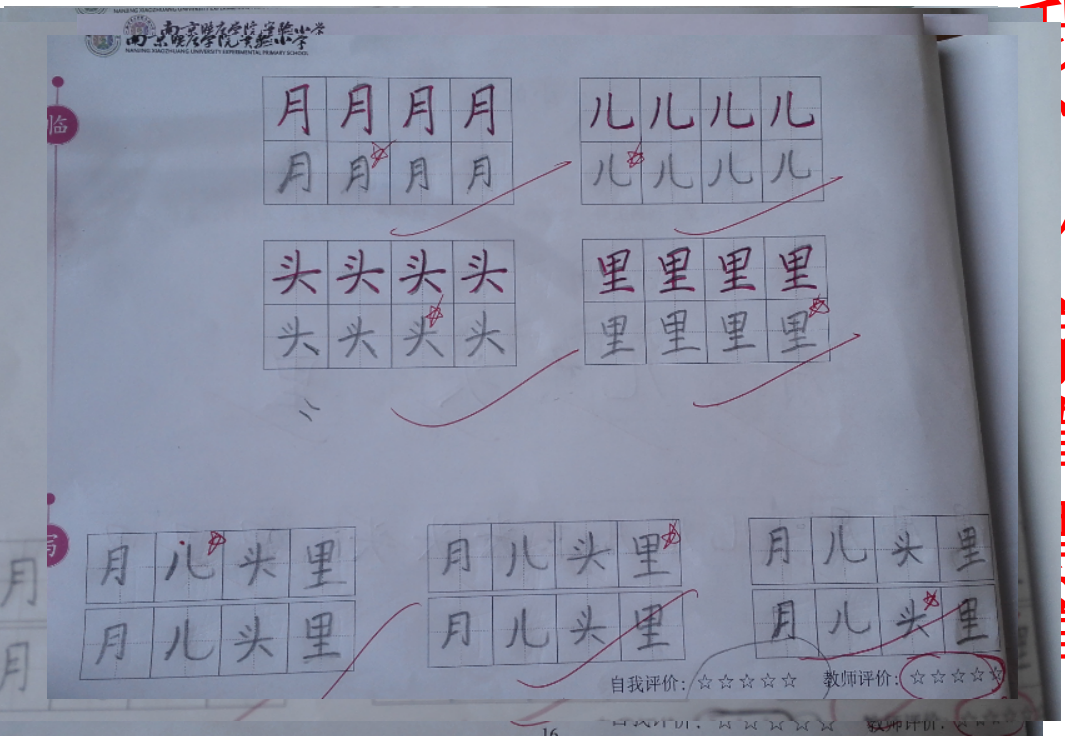 南京晓庄学院实验小学
NANJING XIAOZHUANG UNIVERSITY EXPERIMENTAL PRIMARY SCHOOL
临
月 月 月 月 儿 儿 儿 儿
月 月 月 月 儿 儿 儿 儿
头 头 头 头 里 里 里 里
头 头 头 头 里 里 里 里
写
月 儿 头 里 月 儿 头 里 月 儿 头 里
月 儿 头 里 月 儿 头 里 月 儿 头 里
自我评价：☆☆☆☆☆ 教师评价：☆☆☆☆☆
16